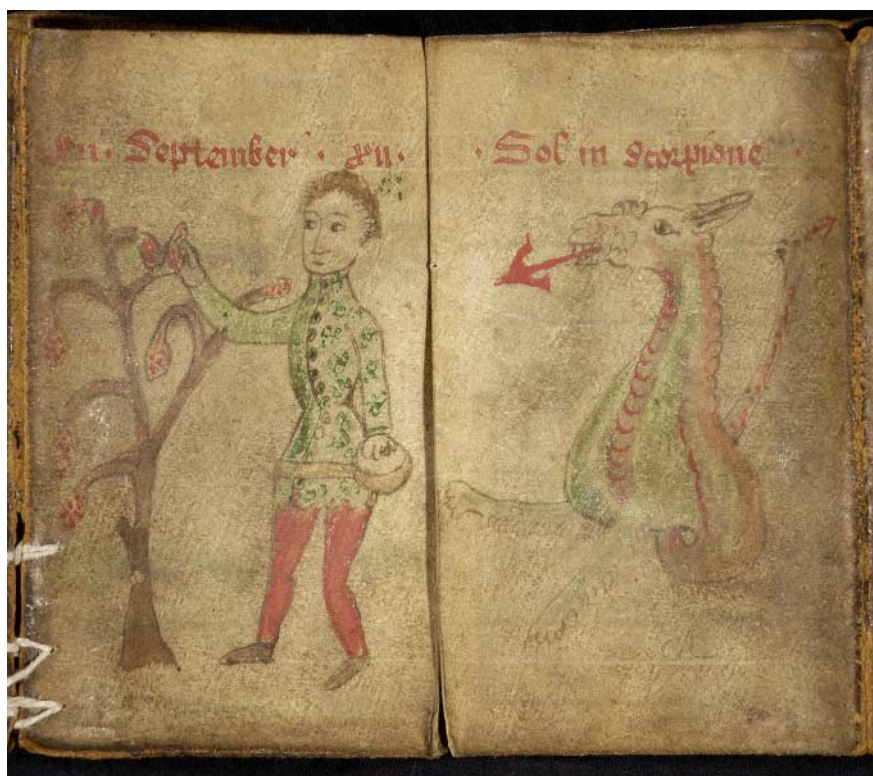 xii · September · xii ·
· Sol in Scorpione ·